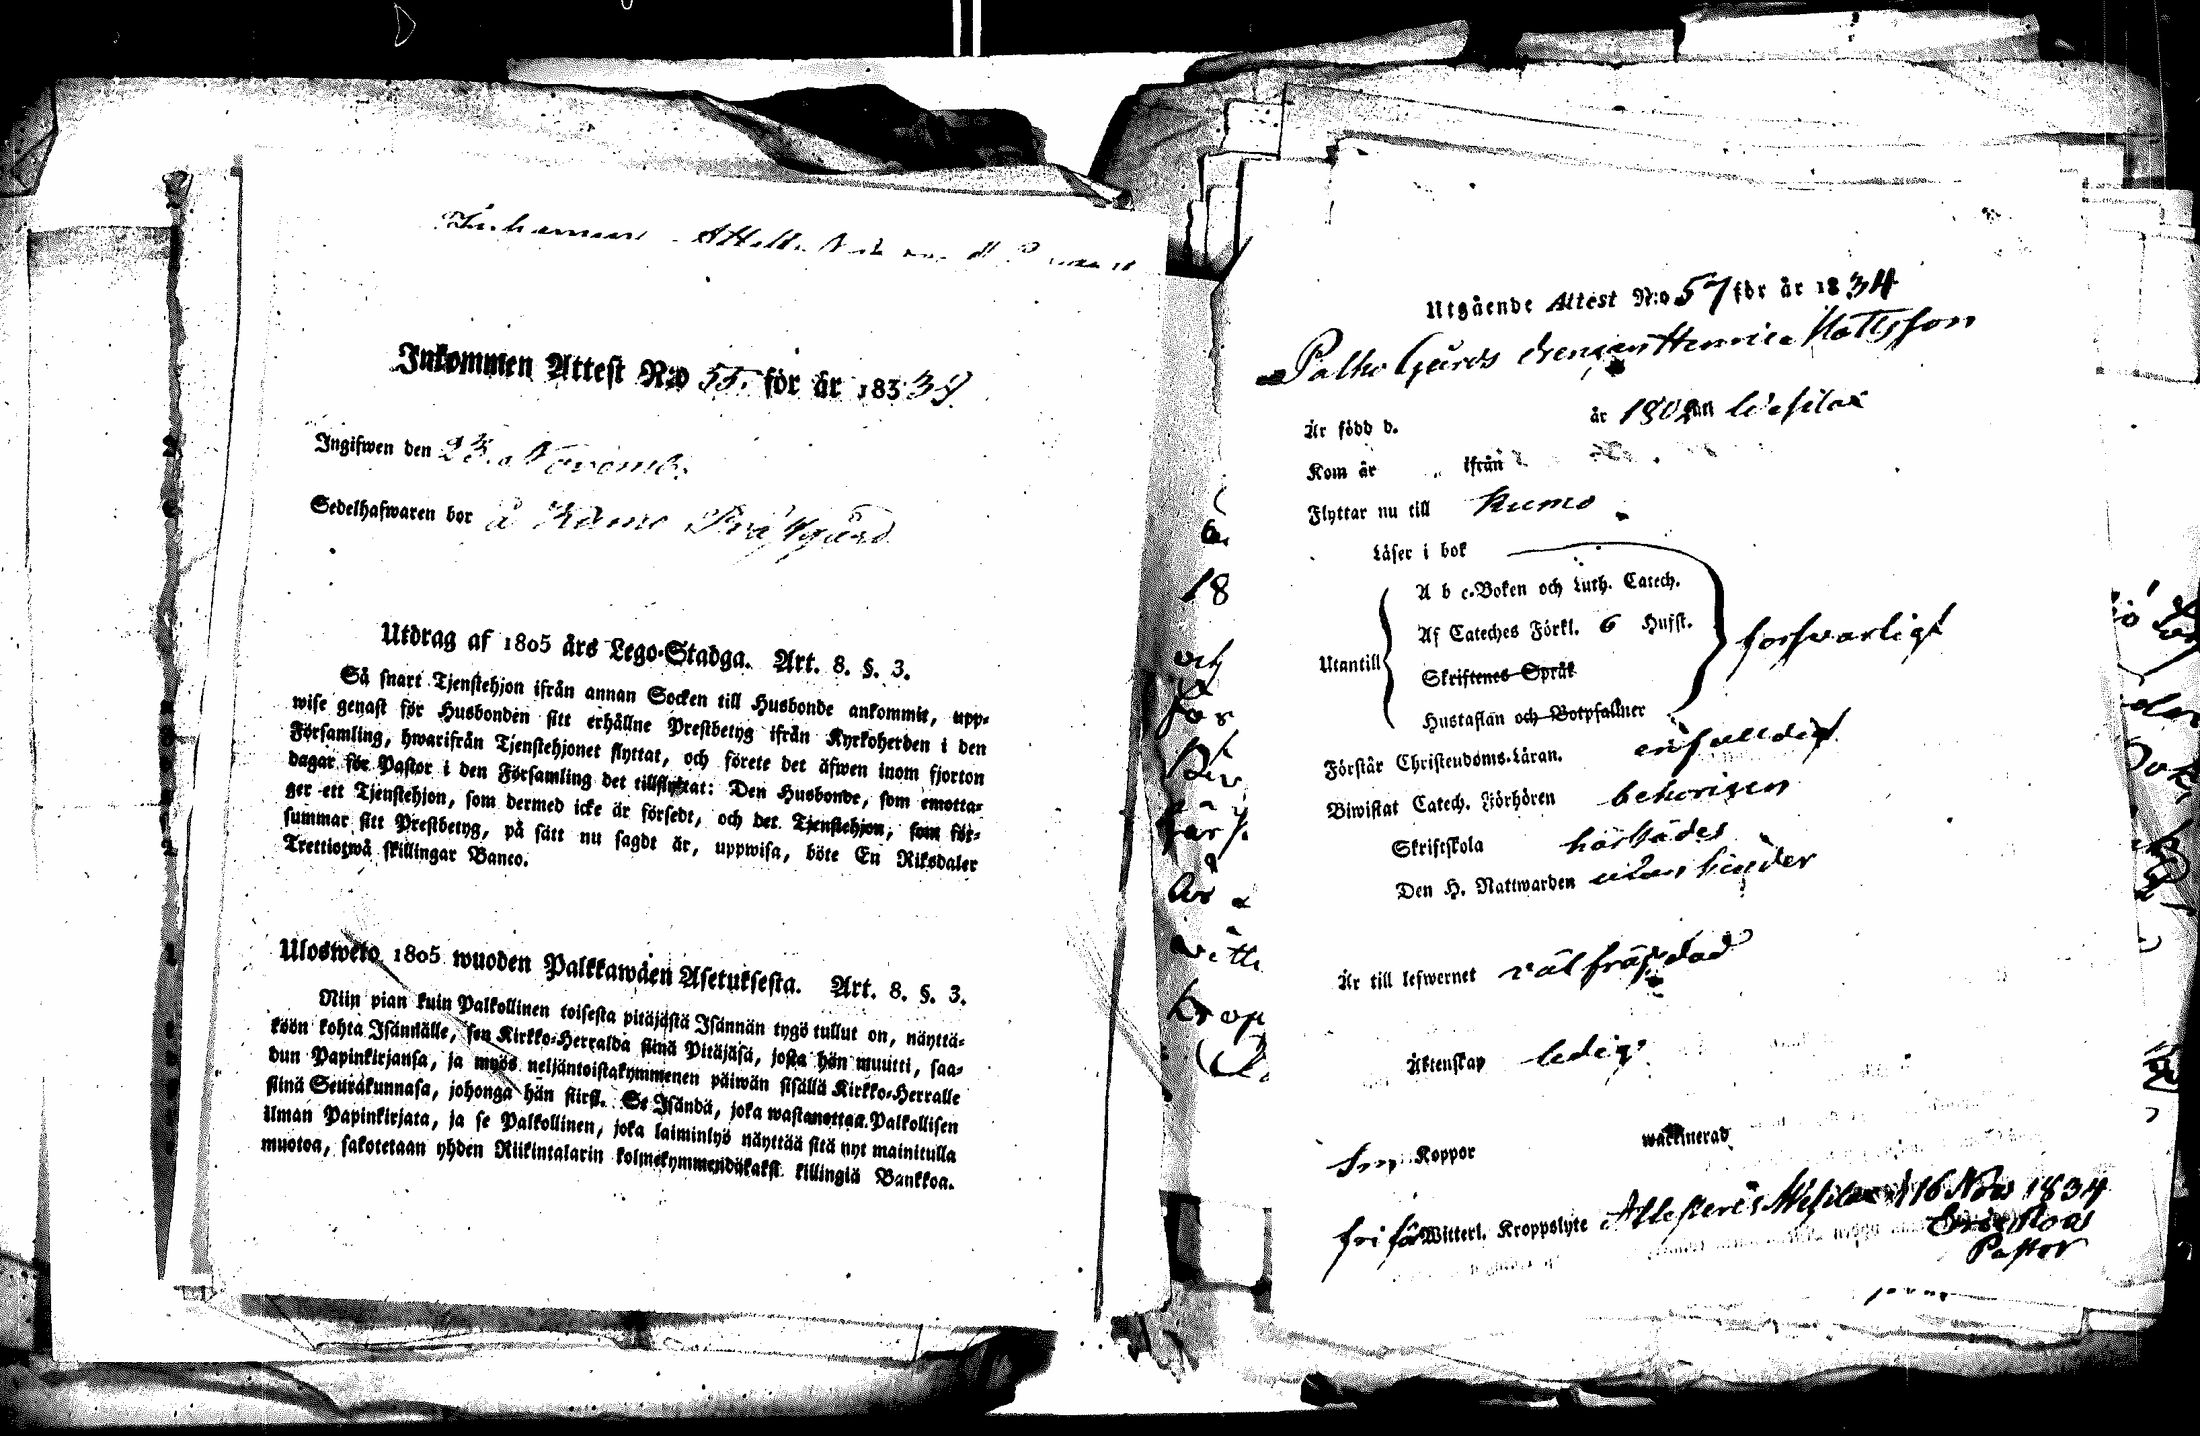 Inkommen Attest N:o 55. för år 183 34.
Ingifwen den 23. Novemb.
Sedelhafwaren bor å Kumo Prästgård
Utdrag af 1805 års Lego-Stadga. Art. 8. §. 3.
Så snart Tjenstehjon ifrån annan Socken till Husbonde ankommit, upp-
wise genast för Husbonden sitt erhållne Prestbetyg ifrån Kyrkoherden i den
Församling, hwarifrån Tjenstehjonet flyttat, och förete det äfwen inom fjorton
dagar för Pastor i den Församling det tillflyttat: Den Husbonde, som emotta-
ger ett Tjenstehjon, som dermed icke är försedt, och det Tjenstehjon, som för-
summar sitt Prestbetyg, på sätt nu sagdt är, uppwisa, böte En Riksdaler
Trettiotwå skillingar Banco.
Ulosweto 1805 wuoden Palkkawäen Asetuksesta. Art. 8. §. 3.
Niin pian kuin Palkollinen toisesta pitäjästä Isännän tygö tullut on, näyttä-
köön kohta Isännälle, sen Kirkko-Herralda siinä Pitäjäsä, josta hän muutti, saa-
dun Papinkirjansa, ja myös neljäntoistakymmenen päiwän sisällä Kirkko-Herralle
siinä Seurakunnasa, johonga hän siirsi. Se Isändä, joka wastanottaa Palkollisen
ilman Papinkirjata, ja se Palkollinen, joka laiminlyö näyttää sitä nyt mainitulla
muotoa, sakotetaan yhden Riikintalarin kolmekymmendäkaksi killingiä Bankkoa.
Utgående Attest N:o 57 för år 1834
Palko Gårds drengen Henric Mattsson
Är född d. år 1802 Wesilax
Kom år ifrån
Flyttar nu till Kumo
Läser i bok
A b c-Boken och Luth. Catech.
Af Cateches Förkl. 6 Hufst.
Utantill försvarligt
Skriftenes Språk
Hustaflan och Botpsallmer
Förstår Christendoms-Läran. enfalldigt
Biwistat Catech. Förhören behörigen
Skriftskola härstädes
Den H. Nattwarden utan hinder
Är till lefwernet välfräjdad
Äktenskap ledig
Koppor waccinerad
fri för Witterl. Kroppslyte Attesteras Wesilax d 16 Nov 1834
Pastor